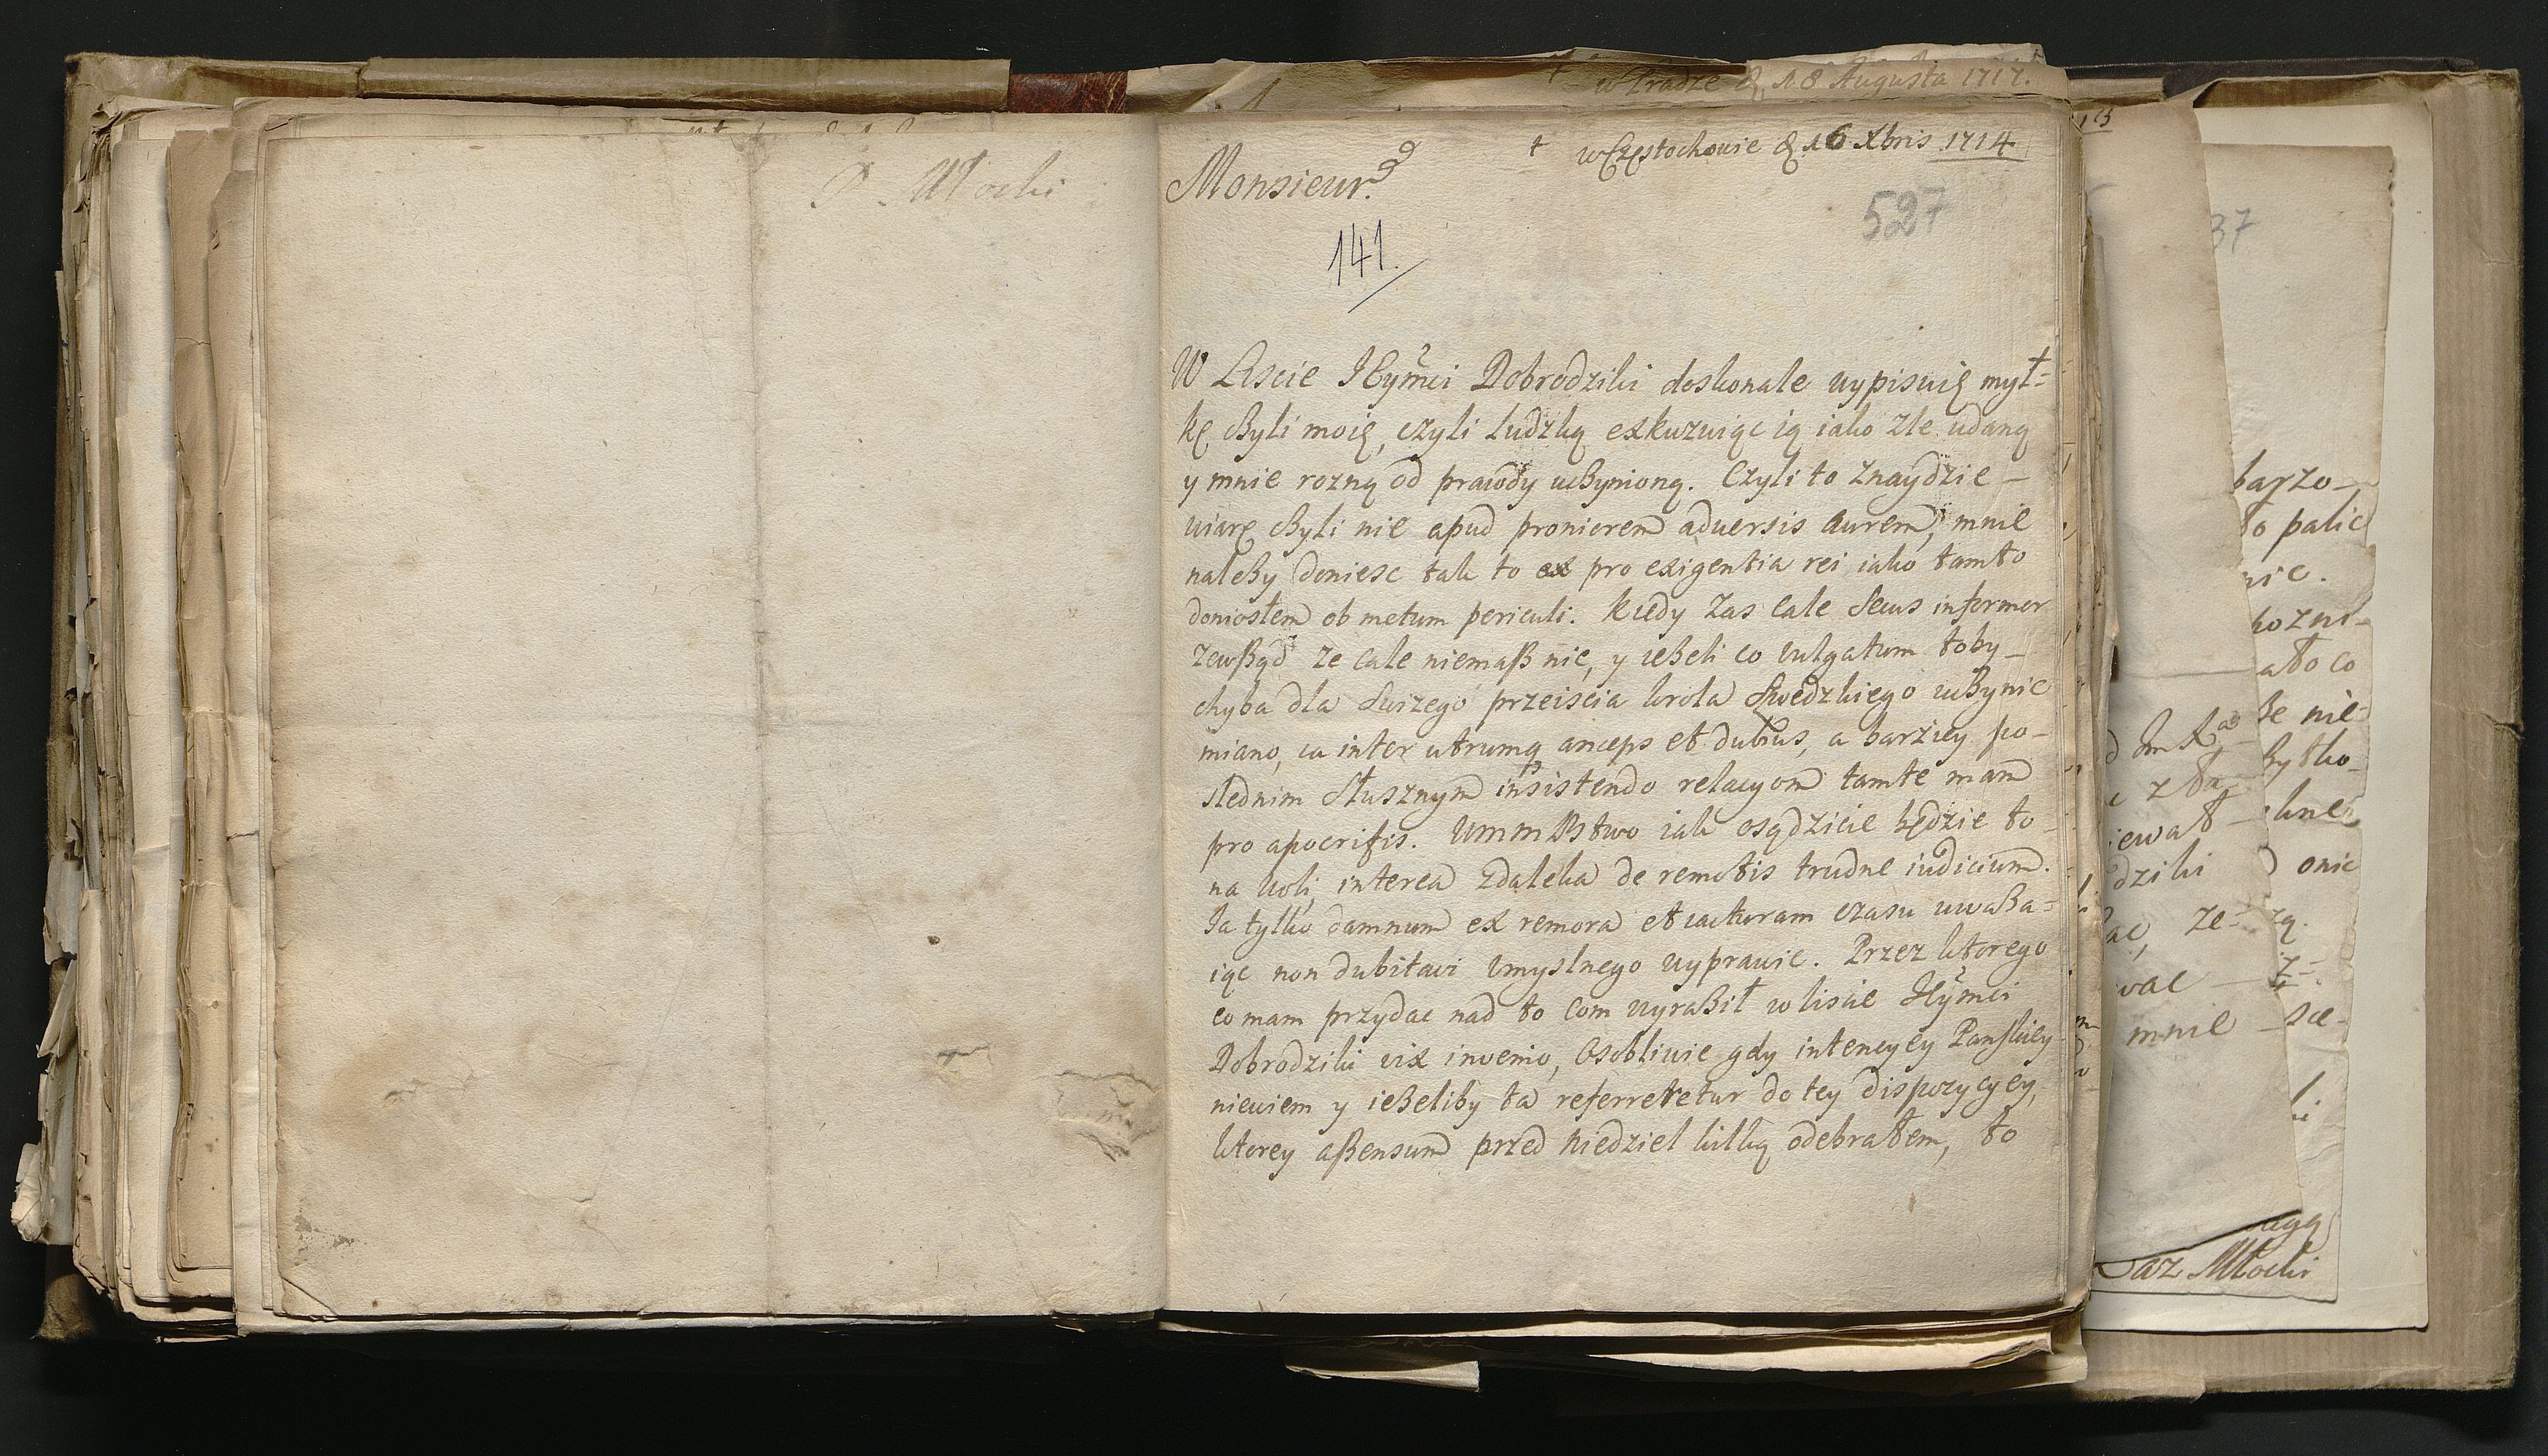 P. Młocki
w Pradze d. 18 Augusta 1717.
† w Częstochowie d. 16 Xbris 1714
Monsieur.
527
141.
W Liscie JEymci Dobrodziki doskonale wypisuię mył=
kę cßyli moię, czyli ludzką exkuzuiąc ią iako zle udaną
y mnie rozną od prawdy ucßynioną. Czyli to znaydzie –
wiarę cßyli nie apud proniorem aduersis aurem, mnie
naleßy doniesc tak to pro exigentia rei iako tamto
doniosłem ob metum periculi. Kiedy zas cale secus informor
zewßąd ze cale niemaß nic, y ießeli co vulgatum toby –
chyba dla swizego przeiscia krola Swedzkiego ucßynic
miano, ia inter utrumq anceps et dubius, a barziey po–
slednim słusznym insistendo relacyom tamte mam
pro apocrifis. WmmPstwo iak osądzicie będzie to
na woli, interea zdaleka de remotis trudne iudicium.
Ja tylko damnum ex remora et iacturam czasu uwaßa=
iąc non dubitavi umyslnego wyprawic. Przez ktorego
co mam przydac nad to com wyraßił w liscie JEymci
Dobrodziki vix invenio, osobliwie gdy intencyey Panskiey
niewiem y ießeliby ta referretetur do tey dispozycyey,
ktorey aßensum przed niedziel kilką odebrałem, to
barzo–
to palic
nic.
ato co
ße nie=
onic
ze=
mnie
az Młocki
37